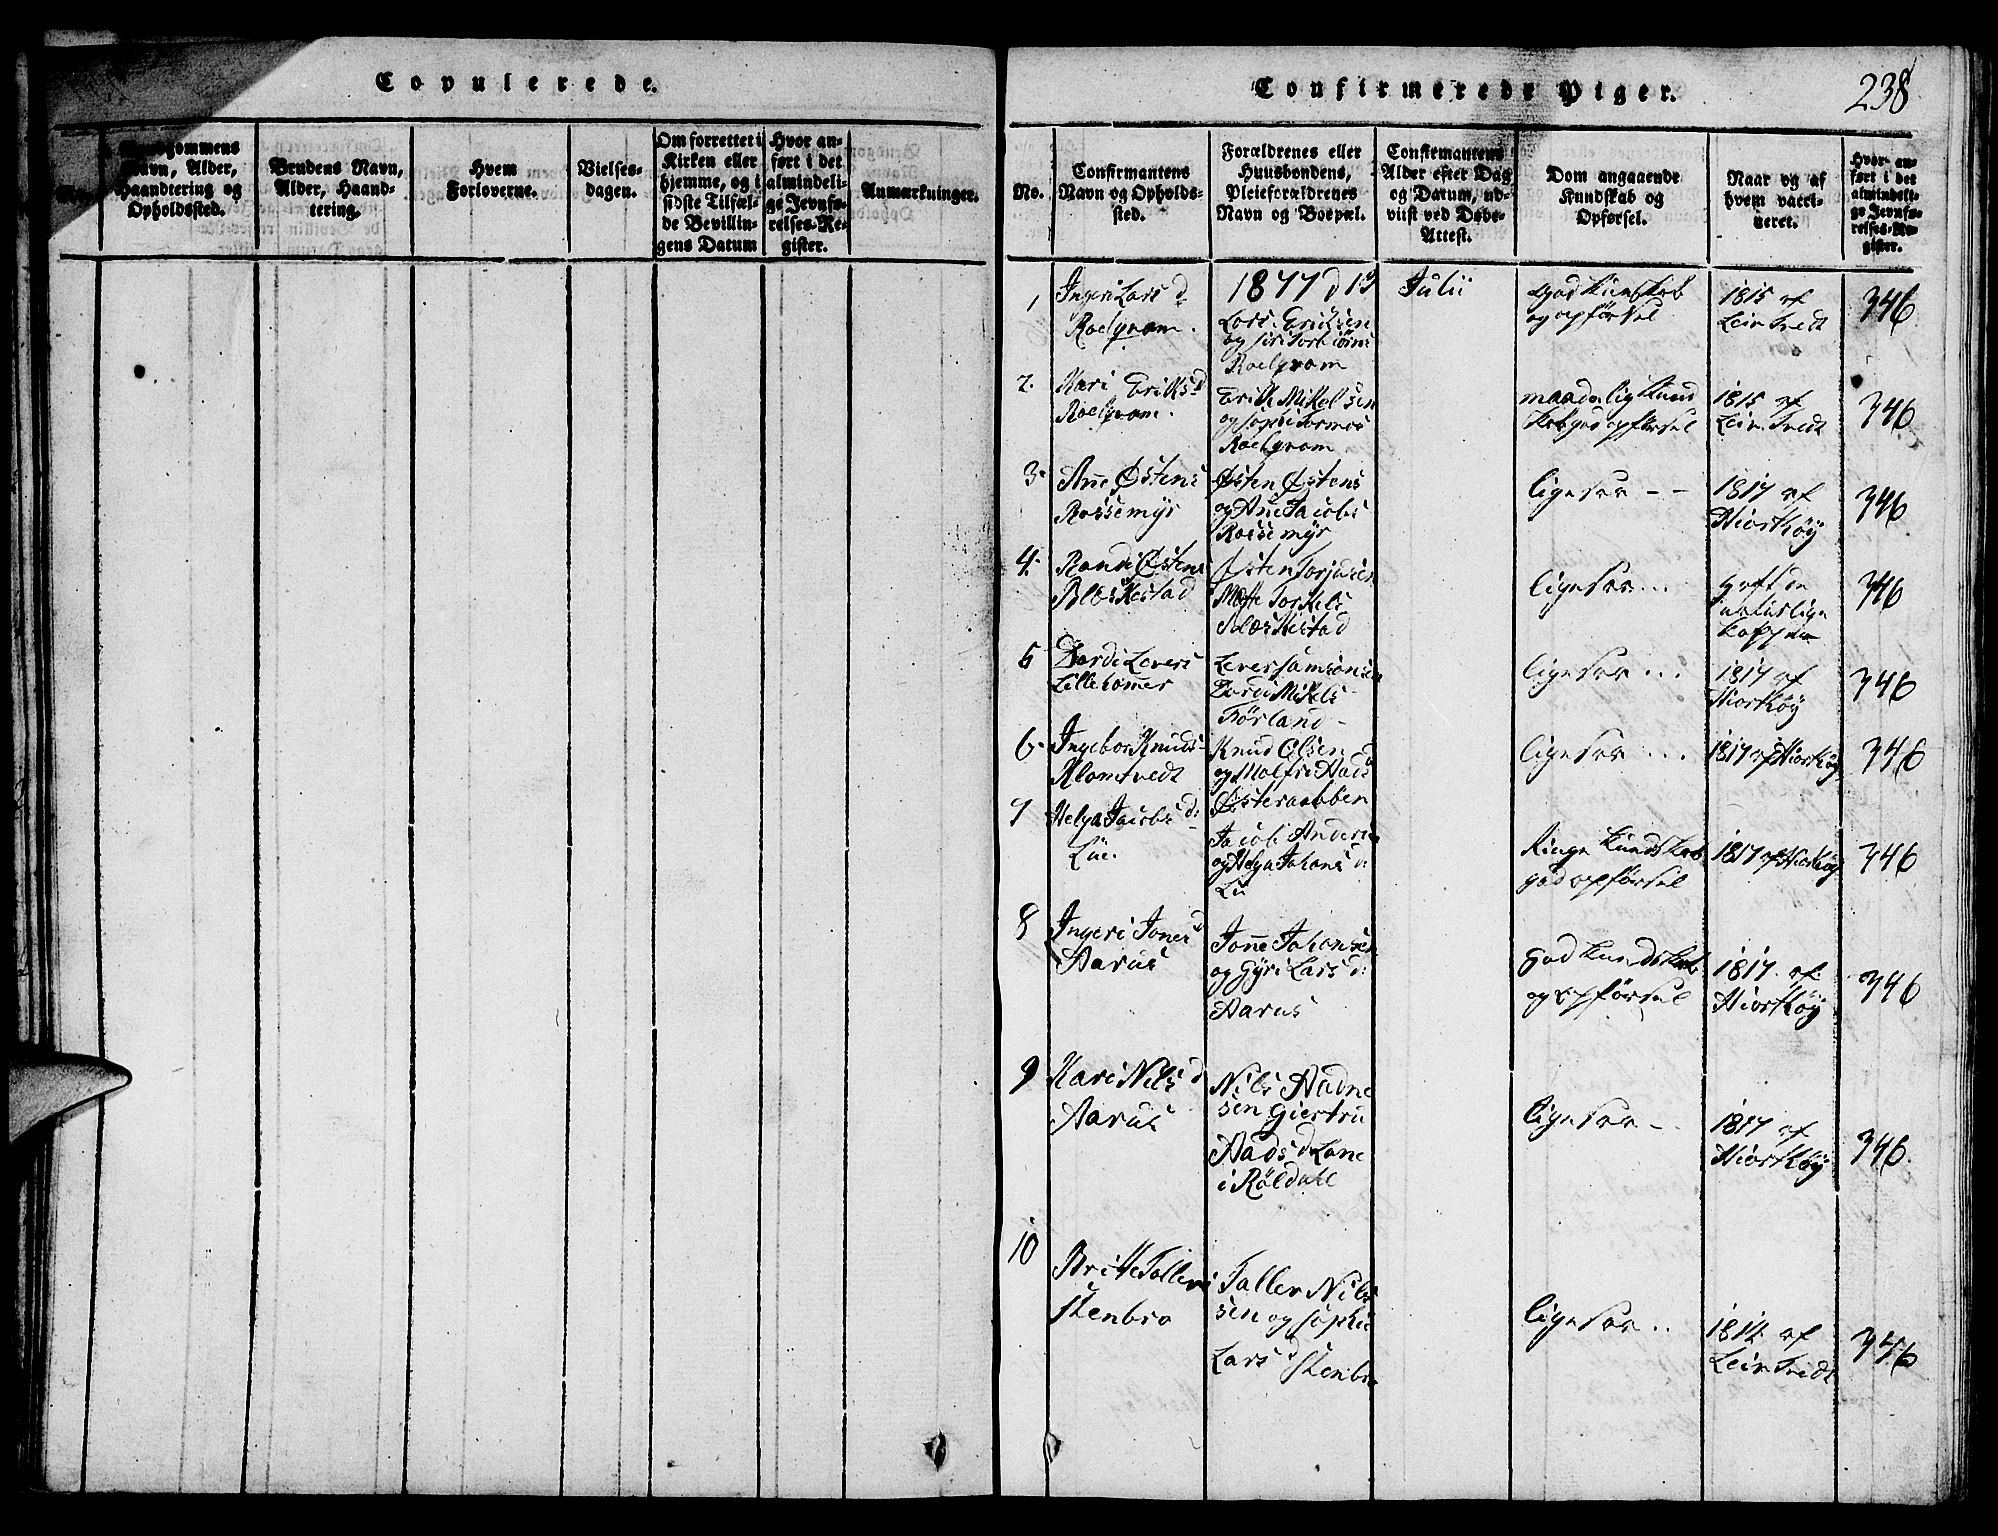 Copulerede.
No.
Brudgommens Navn, Alder, Haandtering og Opholdssted.
Brudens Navn, Alder, Haandtering.
Hvem Forloverne.
Vielsesdagen.
Om forrettet i Kirken eller hjemme, og i sidste Tilfælde Bevillingens Datum
Hvor anført i det almindelige Jevnførelses-Register.
Anmærkninger.
Confirmerede Piger.
238
No.
Confirmantens Navn og Opholdssted.
Forældrenes eller Huusbondens, Pleieforældrenes Navn og Boepæl.
Confirmantens Alder efter Dag og Datum, udviist ved Døbe-Attest.
Dom angaaende Kundskab og Opførsel.
Naar og af hvem vaccineret.
Hvor anført i det almindelige Jevnførelses-Register.
1817 d 13 Julii
1 Ingeri Lars d Roelqvam.
Lars Eriksen og Siri Torbiørns Roelqvam
god Kundskab og opførsel
1815 af Leir Tvedt
346
2. Kari Eriks d Roelqvam.
Erik Mikelsen og Sophi Tormos Roelqvam
maadelig Kundskab god opførsel
1815 af Leir Tvedt
346
3. Añe Østens Rossemyr
Østen Østens og Añe Jacobs Rossemyr
ligesaa - -
1817 af Hiorthøÿ
346
4. Randi Østens Bleskestad
Østen Torjusen Torkels Bleskestad
ligesaa ...
haft de naturlige Kopper
346
5 Dordi Levers Lilleham̃er
Lever Samsonsen Dordi Mikels Førland -
ligesaa ...
1817 af Hiorthøÿ
346
6. Ingebor Knuds Klomtvedt
Knud Olsen og Malfri Aads d Østeraabben
ligesaa ...
1817 af Hiorthøÿ
346
7 Helga Jacobs d: Lüe.
Jacob Anders og Helga Johans d: Lü
Ringe Kundskab god opførsel
1817 af Hiorthøÿ
346
8 Ingeri Jones d Aarus
Joñe Johansen og Gÿri Lars d: Aarus
god Kundskab og opførsel
1817. af Hiorthøÿ
346
9 Kari Nils d Aarus
Nils Aadnesen Giertru Aads d Lone i Røldahl
ligesaa -
1817 af Hiorthøÿ
346.
10 Britte Tallevs Stenbro
Tallev Nilssen og Sophi Lars d Stenbro
ligesaa ..
1814. af Leir Tvedt
346